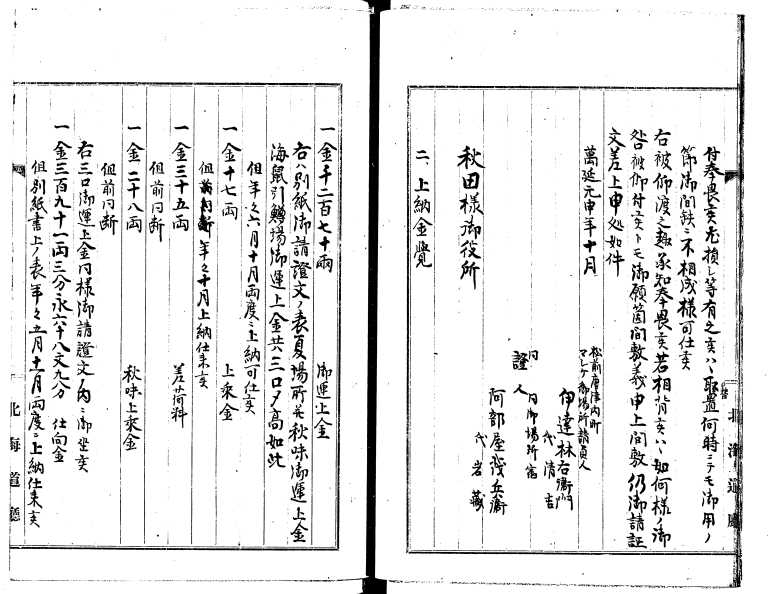 付奉畏亥尤損シ等有之亥ハヽ取置何時ニテモ御用ノ
節御間缺ニ不相成様可仕亥
右被仰渡之趣承知奉畏亥若相背亥ハヽ如何様ノ御
咎被仰付亥トモ御願箇間敷義申上間敷仍御請証
文差上申処如件
萬延元申年十月
松前唐津内町
マシケ御場所請負人
伊達林右衛門
代清吉
證人
同 同御場所宿
阿部屋茂兵衛
代岩藏
秋田様御役所
二、上納金覺
北海道廳
一金千二百七十両 御運上金
右ハ別紙御請證文ノ表夏場所并秋味御運上金
海鼠引鱒場御運上金共ハ三口〆高如此
但年々六月十月両度ニ上納可仕亥
一金十七両 上乘金
但前同断年々十月上納仕来亥
一金三十五両 差荷料
但前同断
一金二十八両 秋味上乘金
但前同断
右三口御運上金同様御請證文ノ内ニ御坐亥
一金三百九十一両三分永六十八文九分 仕向金
但別紙書上ノ表年々五月十一月両度ニ上納仕来亥
北海道廳